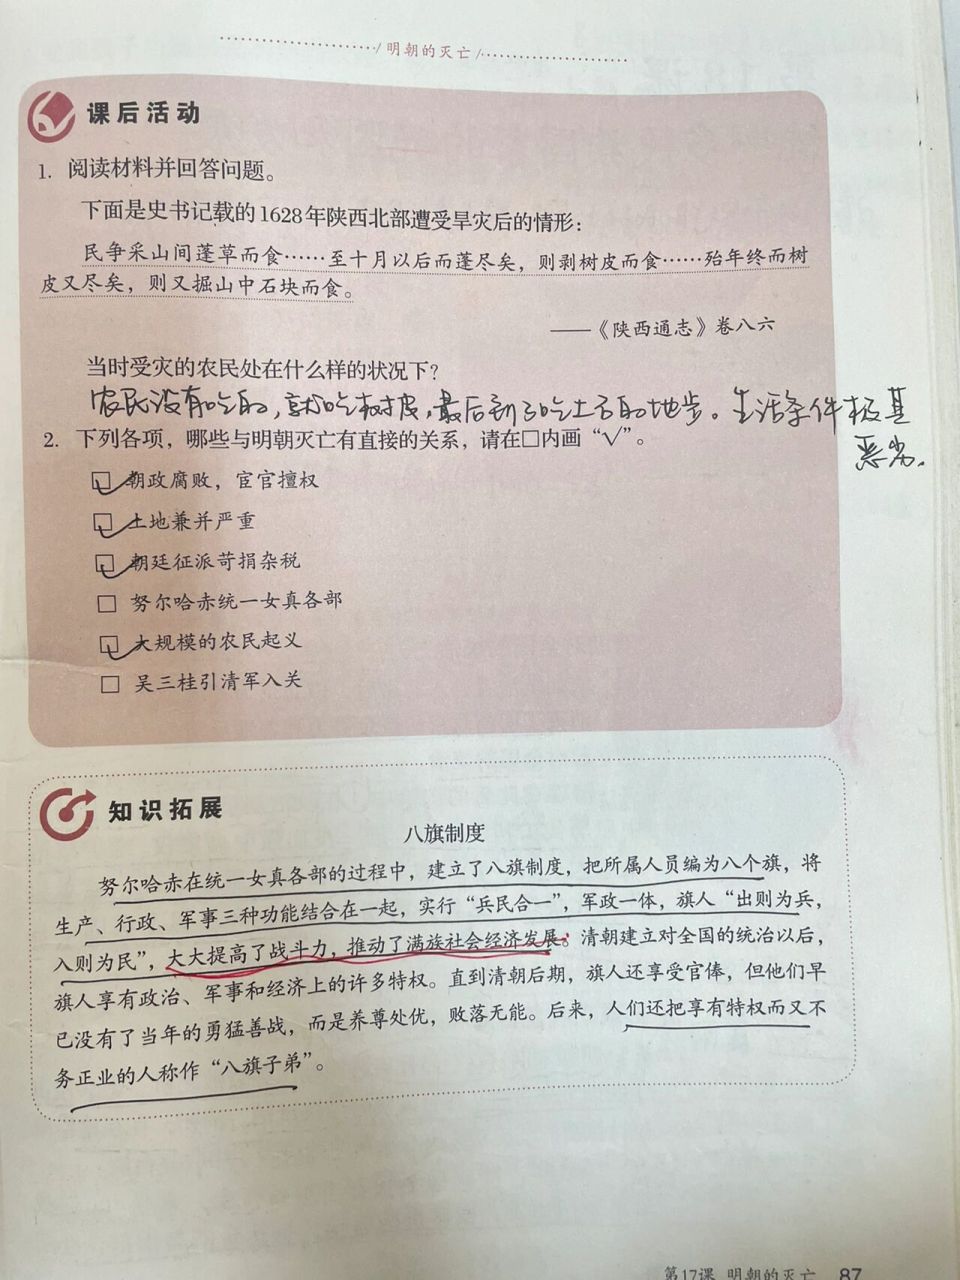 明朝的灭亡
课后活动
1. 阅读材料并回答问题。
下面是史书记载的1628年陕西北部遭受旱灾后的情形：
民争采山间蓬草而食……至十月以后而蓬尽矣，则剥树皮而食……殆年终而树
皮又尽矣，则又掘山中石块而食。
——《陕西通志》卷八六
当时受灾的农民处在什么样的状况下？
农民没有吃的，就吃树皮，最后到了吃土石的地步。生活条件极其
恶劣.
2. 下列各项，哪些与明朝灭亡有直接的关系，请在□内画“√”。
朝政腐败，宦官擅权
土地兼并严重
朝廷征派苛捐杂税
□ 努尔哈赤统一女真各部
大规模的农民起义
□ 吴三桂引清军入关
知识拓展
八旗制度
努尔哈赤在统一女真各部的过程中，建立了八旗制度，把所属人员编为八个旗，将
生产、行政、军事三种功能结合在一起，实行“兵民合一”，军政一体，旗人“出则为兵，
入则为民”，大大提高了战斗力，推动了满族社会经济发展。清朝建立对全国的统治以后，
旗人享有政治、军事和经济上的许多特权。直到清朝后期，旗人还享受官俸，但他们早
已没有了当年的勇猛善战，而是养尊处优，败落无能。后来，人们还把享有特权而又不
务正业的人称作“八旗子弟”。
第17课 明朝的灭亡 87